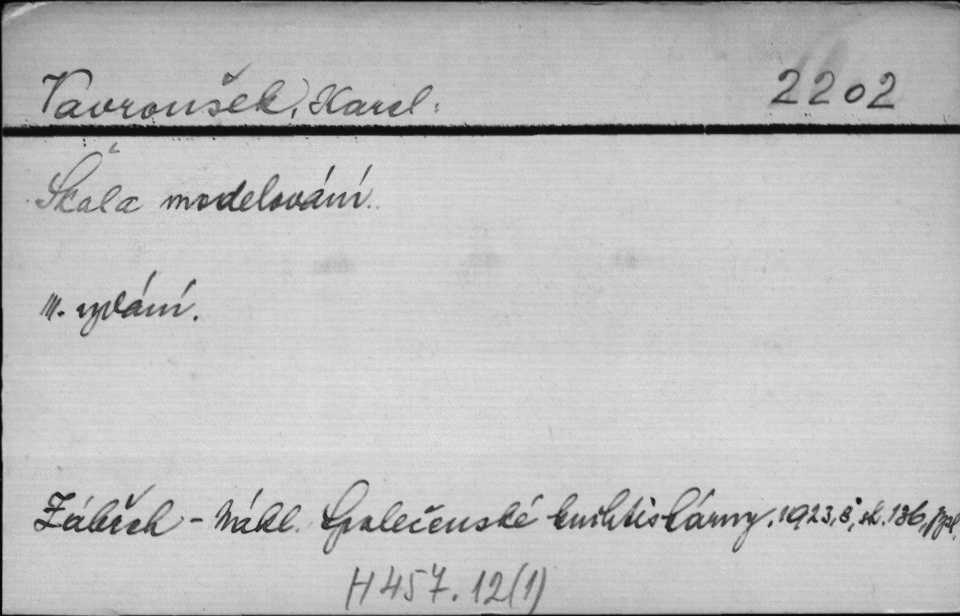 Vavroušek, Karel: 2202
Škola modelování.
III. vydání.
Zábřeh - Nákl. Společenské knihtiskárny, 1923, 8, st. 136,
H 457.12(1)